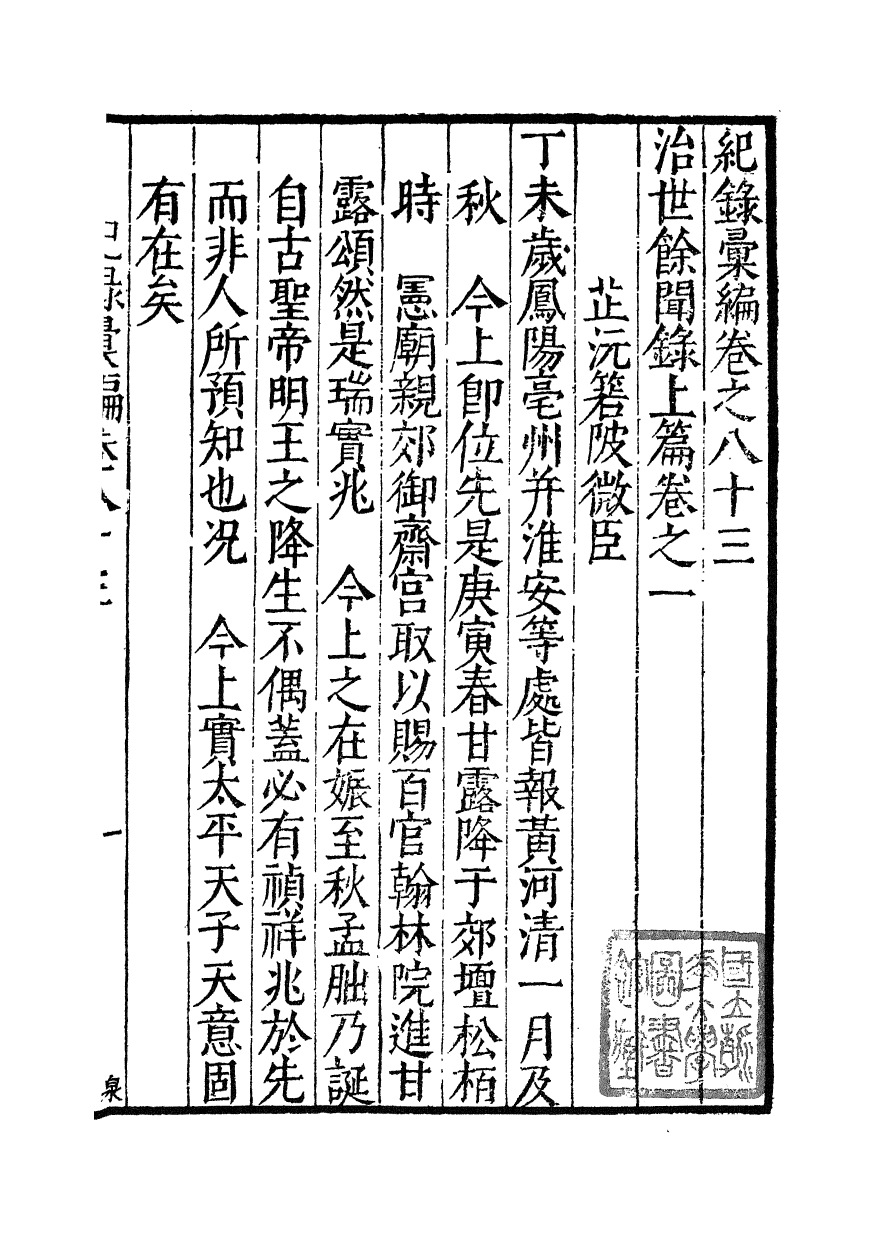 紀錄彙編卷之八十三
治世餘聞錄上篇卷之一
芷沅箬陂微臣
丁未歲鳳陽亳州并淮安等處皆報黃河清一月及
秋　今上即位先是庚寅春甘露降于郊壇松栢
時　憲廟親郊御齋宮取以賜百官翰林院進甘
露頌然是瑞實兆　今上之在娠至秋孟朏乃誕
自古聖帝明王之降生不偶蓋必有禎祥兆於先
而非人所預知也况　今上實太平天子天意固
有在矣
一
泉
國立北平大學圖書館藏